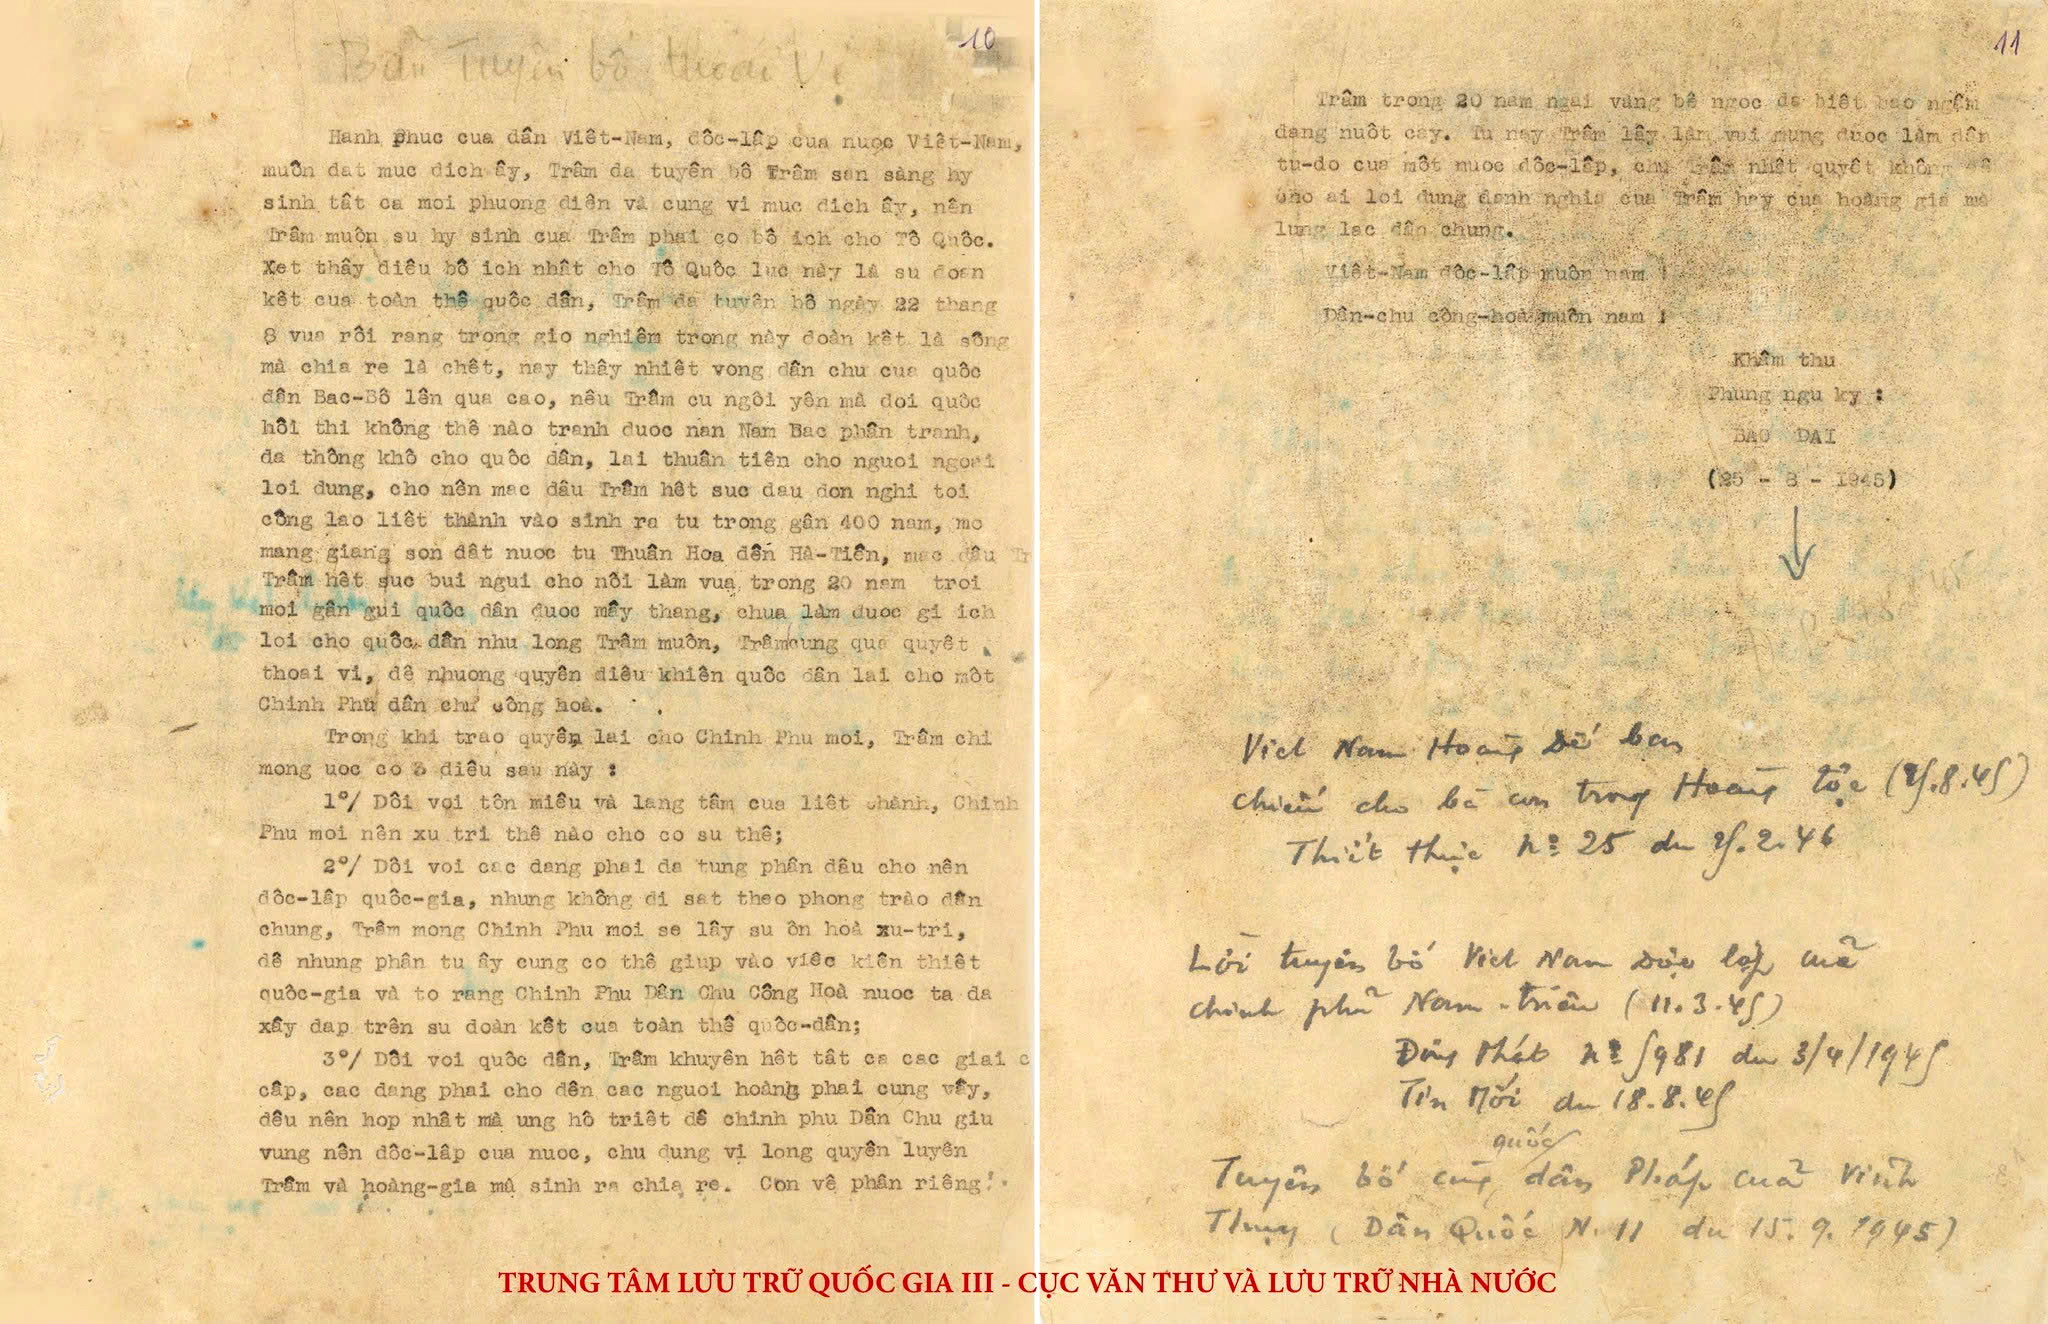 10
Bản Tuyên bố thoái Vị
Hanh phuc cua dân Viêt-Nam, dôc-lâp cua nuoc Viêt-Nam,
muôn dat muc dich ây, Trâm da tuyên bô Trâm san sàng hy
sinh tât ca moi phuong diên và cung vi muc dich ây, nên
Trâm muôn su hy sinh cua Trâm phai co bô ich cho Tô Quôc.
Xet thây diêu bô ich nhât cho Tô Quôc luc này là su doan
kêt cua toàn thê quôc dân, Trâm da tuyên bô ngày 22 thang
8 vua rôi rang trong gio nghiêm trong này doàn kêt là sông
mà chia re là chêt, nay thây nhiêt vong dân chu cua quôc
dân Bac-Bô lên qua cao, nêu Trâm cu ngôi yên mà doi quôc
hôi thi không thê nào tranh duoc nan Nam Bac phân tranh,
da thông khô cho quôc dân, lai thuân tiên cho nguoi ngoai
loi dung, cho nên mac dâu Trâm hêt suc dau don nghi toi
công lao liêt thành vào sinh ra tu trong gân 400 nam, mo
mang giang son dât nuoc tu Thuân Hoa dến Hà-Tiên, mac dâu Tr
Trâm hêt suc bui ngui cho nôi làm vua trong 20 nam troi
moi gân gui quôc dân duoc mây thang, chua làm duoc gi ich
loi cho quôc dân nhu long Trâm muôn, Trâm cung qua quyêt
thoai vi, dê nhuong quyên diêu khiên quôc dân lai cho môt
Chinh Phu dân chu công hoà.
Trong khi trao quyên lai cho Chinh Phu moi, Trâm chi
mong uoc co 3 diêu sau này :
1º/ Dôi voi tôn miêu và lang tâm cua liêt thành, Chinh
Phu moi nên xu tri thê nào cho co su thê;
2º/ Dôi voi cac dang phai da tung phân dâu cho nên
dôc-lâp quôc-gia, nhung không di sat theo phong trào dân
chung, Trâm mong Chinh Phu moi se lây su ôn hoà xu-tri,
dê nhung phân tu ây cung co thê giup vào viêc kiên thiêt
quôc-gia và to rang Chinh Phu Dân Chu Công Hoà nuoc ta da
xây dap trên su doàn kêt cua toàn thê quôc-dân;
3º/ Dôi voi quôc dân, Trâm khuyên hêt tât ca cac giai c
câp, cac dang phai cho dên cac nguoi hoàng phai cung vây,
dêu nên hop nhât mà ung hô triêt dê chinh phu Dân Chu giu
vung nên dôc-lâp cua nuoc, chu dung vi long quyên luyên
Trâm và hoàng-gia mà sinh ra chia re. Con vê phân riêng!
11
Trâm trong 20 nam ngai vang bê ngoc da biêt bao ngâm
dang nuôt cay. Tu nay Trâm lây làm vui mung duoc làm dân
tu-do cua môt nuoc dôc-lâp, chu Trâm nhât quyêt không dê
cho ai loi dung danh nghia cua Trâm hay cua hoàng gia mà
lung lac dân chung.
Viêt-Nam dôc-lâp muôn nam !
Dân-chu công-hoà muôn nam !
Khâm thu
Phung ngu ky :
BAO DAI
(25 - 8 - 1945)
Việt Nam Hoàng Đế ban
chiếu cho bà con trong Hoàng tộc (25.8.45)
Thiết thực nº 25 du 25.2.46
Lời tuyên bố Việt Nam Độc lập của
chính phủ Nam-triều (11.3.45)
Đông Phát nº 5981 du 3/4/1945
Tin Mới du 18.8.45
quốc
Tuyên bố cùng dân Pháp của Vĩnh
Thụy (Dân Quốc N. 11 du 15.9.1945)
TRUNG TÂM LƯU TRỮ QUỐC GIA III - CỤC VĂN THƯ VÀ LƯU TRỮ NHÀ NƯỚC